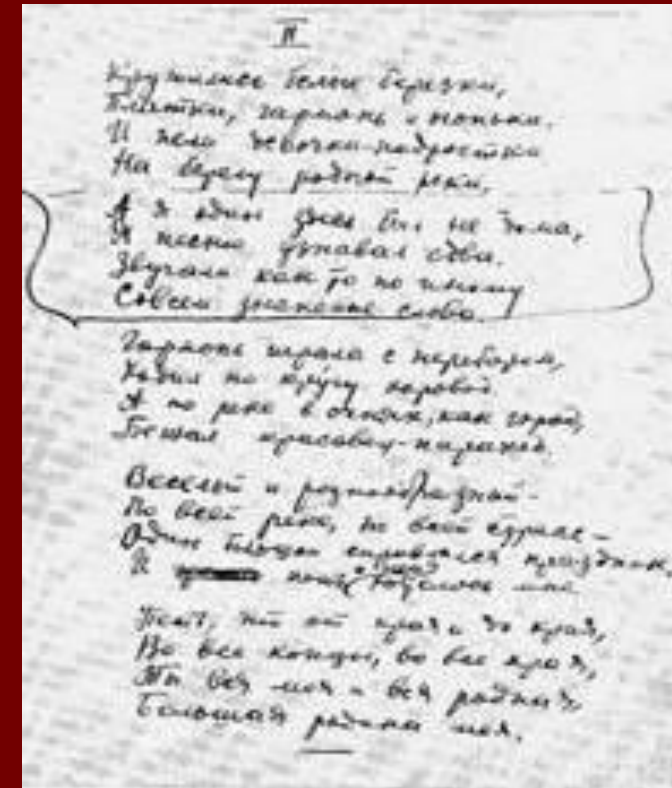 II
Кружились белые березки,
Платки, гармонь и огоньки.
И пели девочки-подростки
На берегу родной реки,
А я один здесь был не дома,
Я песню узнавал едва.
Звучали как-то по иному
Совсем знакомые слова.
Гармонь играла с перебором,
Ходил по кругу хоровод.
А по реке в огнях, как город,
Бежал красавец-пароход.
Веселый и разнообразный –
По всей реке, по всей стране –
Один большой справлялся праздник,
И петь хотелось мне
Петь, что от края и до края,
Во все концы, во все края,
Ты вся моя и вся родная,
Большая родина моя.